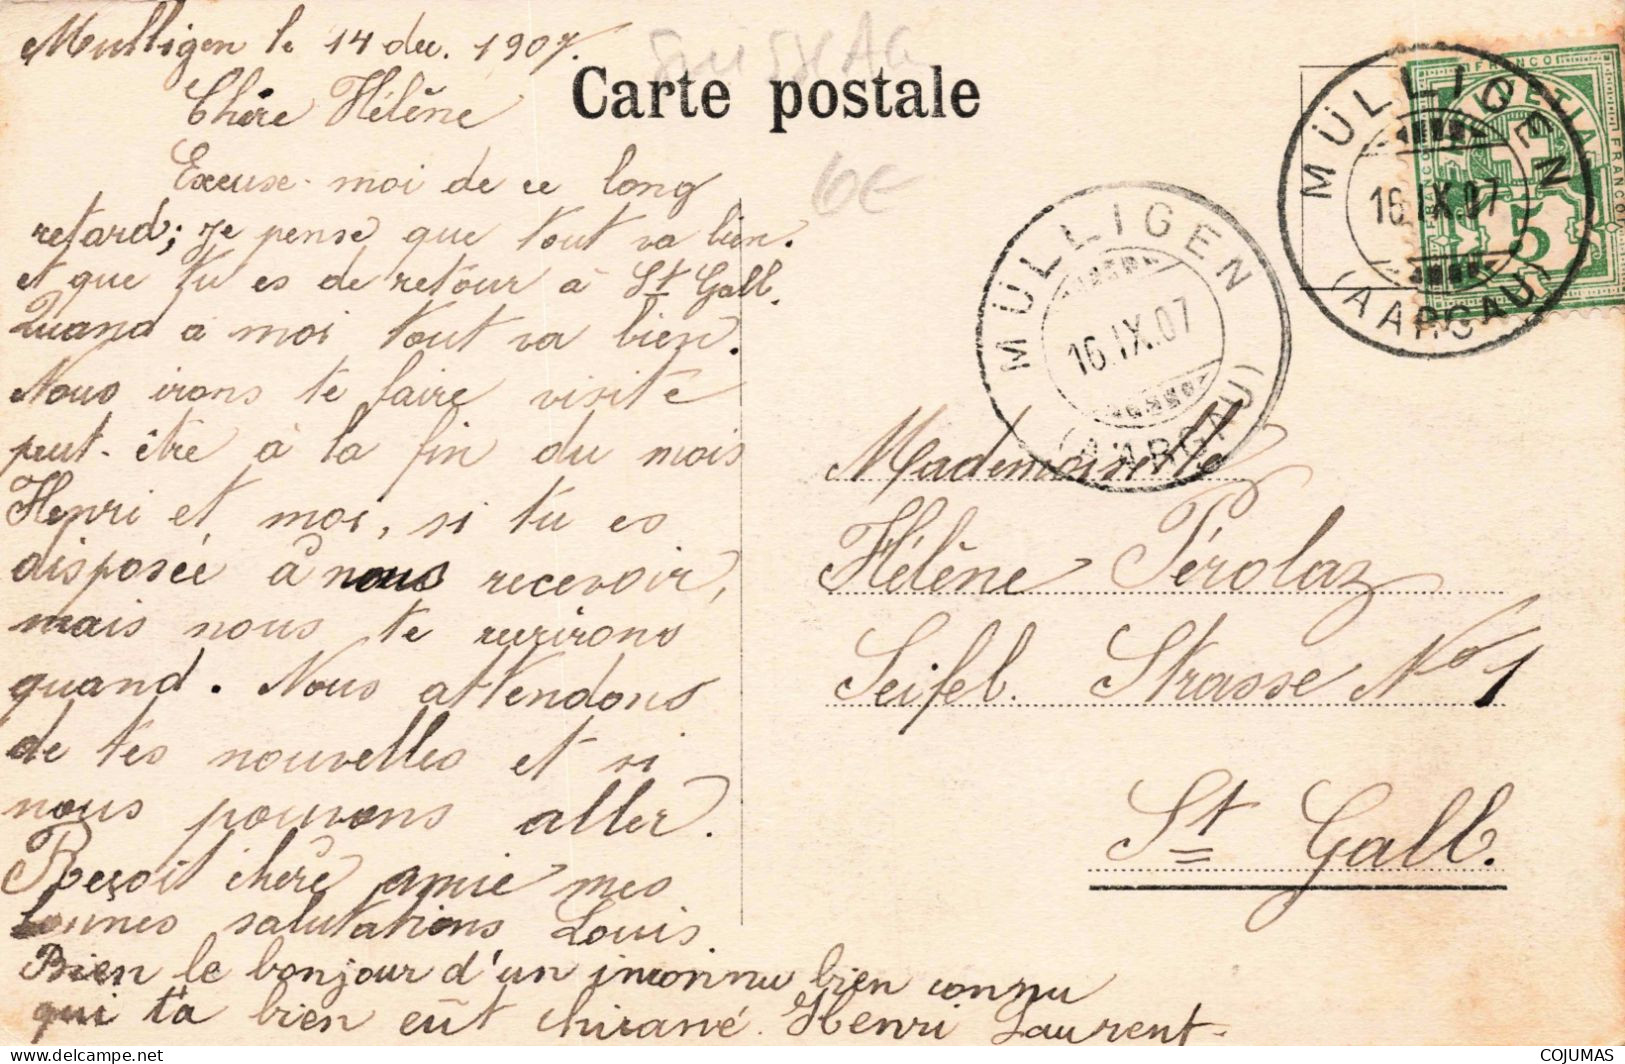 Mulligen le 14 dec. 1907.
Chère Hélène
Carte postale
Excuse-moi de ce long
retard; je pense que tout va bien.
et que tu es de retour à St Gall.
Quand à moi tout va bien.
Nous irons te faire visite
peut-être à la fin du mois
Henri et moi, si tu es
disposée à nous recevoir,
mais nous te
quand. Nous attendons
de tes nouvelles et si
nous pouvons aller.
Reçoit chère amie mes
bonnes salutations Louis
Bien le bonjour d'un inconnu bien connu
qui t'a bien eût. Henri Laurent
6€
MÜLLIGEN
16.IX.07
(AARGAU)
MÜLLIGEN
16.IX.07
(AARGAU)
FRANCO
HELVETIA
FRANCO
5
Mademoiselle
Hélène Pérolaz
Seifel. Strasse No 1
St Gall.
COJUMAS